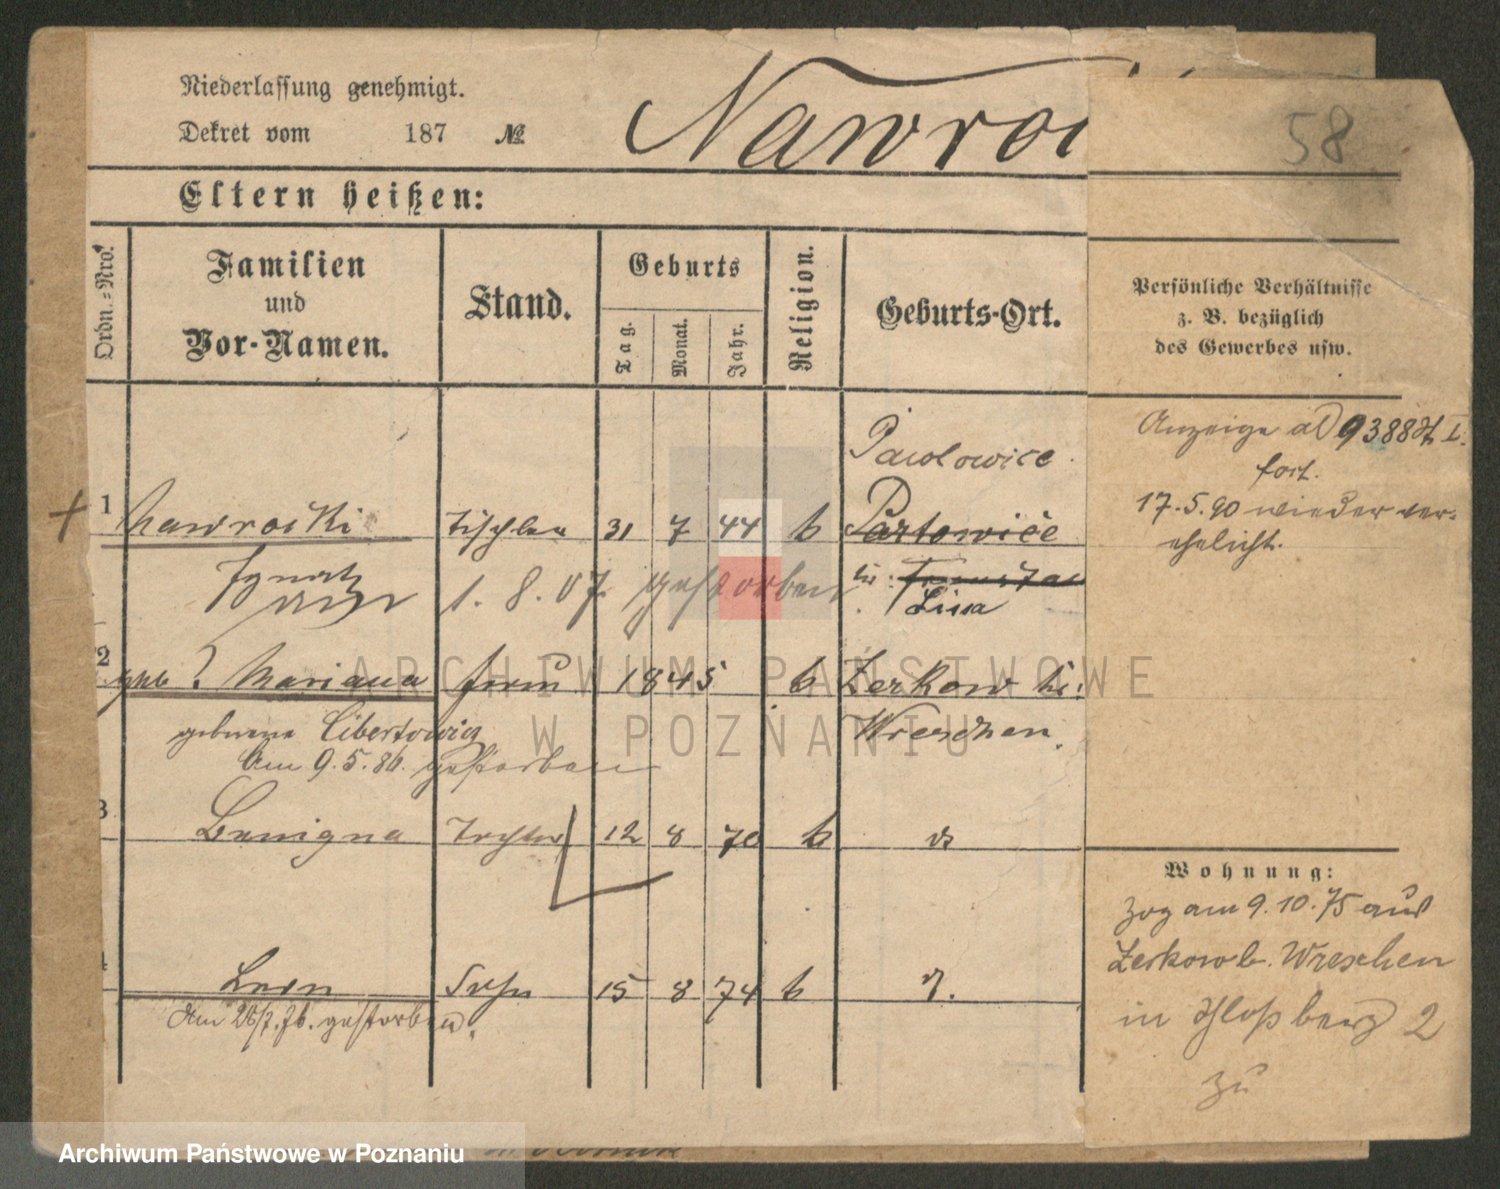 58
Niederlassung genehmigt.
Dekret vom 187 №
Nawroc
Eltern heißen:
Ordn.-Nro.
Familien
und
Vor-Namen.
Stand.
Geburts
Tag.
Monat.
Jahr.
Religion.
Geburts-Ort.
Persönliche Verhältnisse
z. B. bezüglich
des Gewerbes usw.
Pawlowice
1 Nawrocki Tischler 31 7 44 k Partowice
Ignatz
1. 8. 07. gestorben
Lissa
2 Mariana Frau 1845 k Zerkow
geborene Libertowicz Wreschen
Am 9.5.86. gestorben
3 Benigna Tochter 12 8 70 k
4 Leon Sohn 15 8 74 k
gestorben.
Anzeige 9388
fort.
17.5.90 wieder ver-
ehelicht.
Wohnung:
Zog am 9.10.75 aus
Zerkow b. Wreschen
in Schloßberg 2
zu
ARCHIWUM PAŃSTWOWE
W POZNANIU
Archiwum Państwowe w Poznaniu